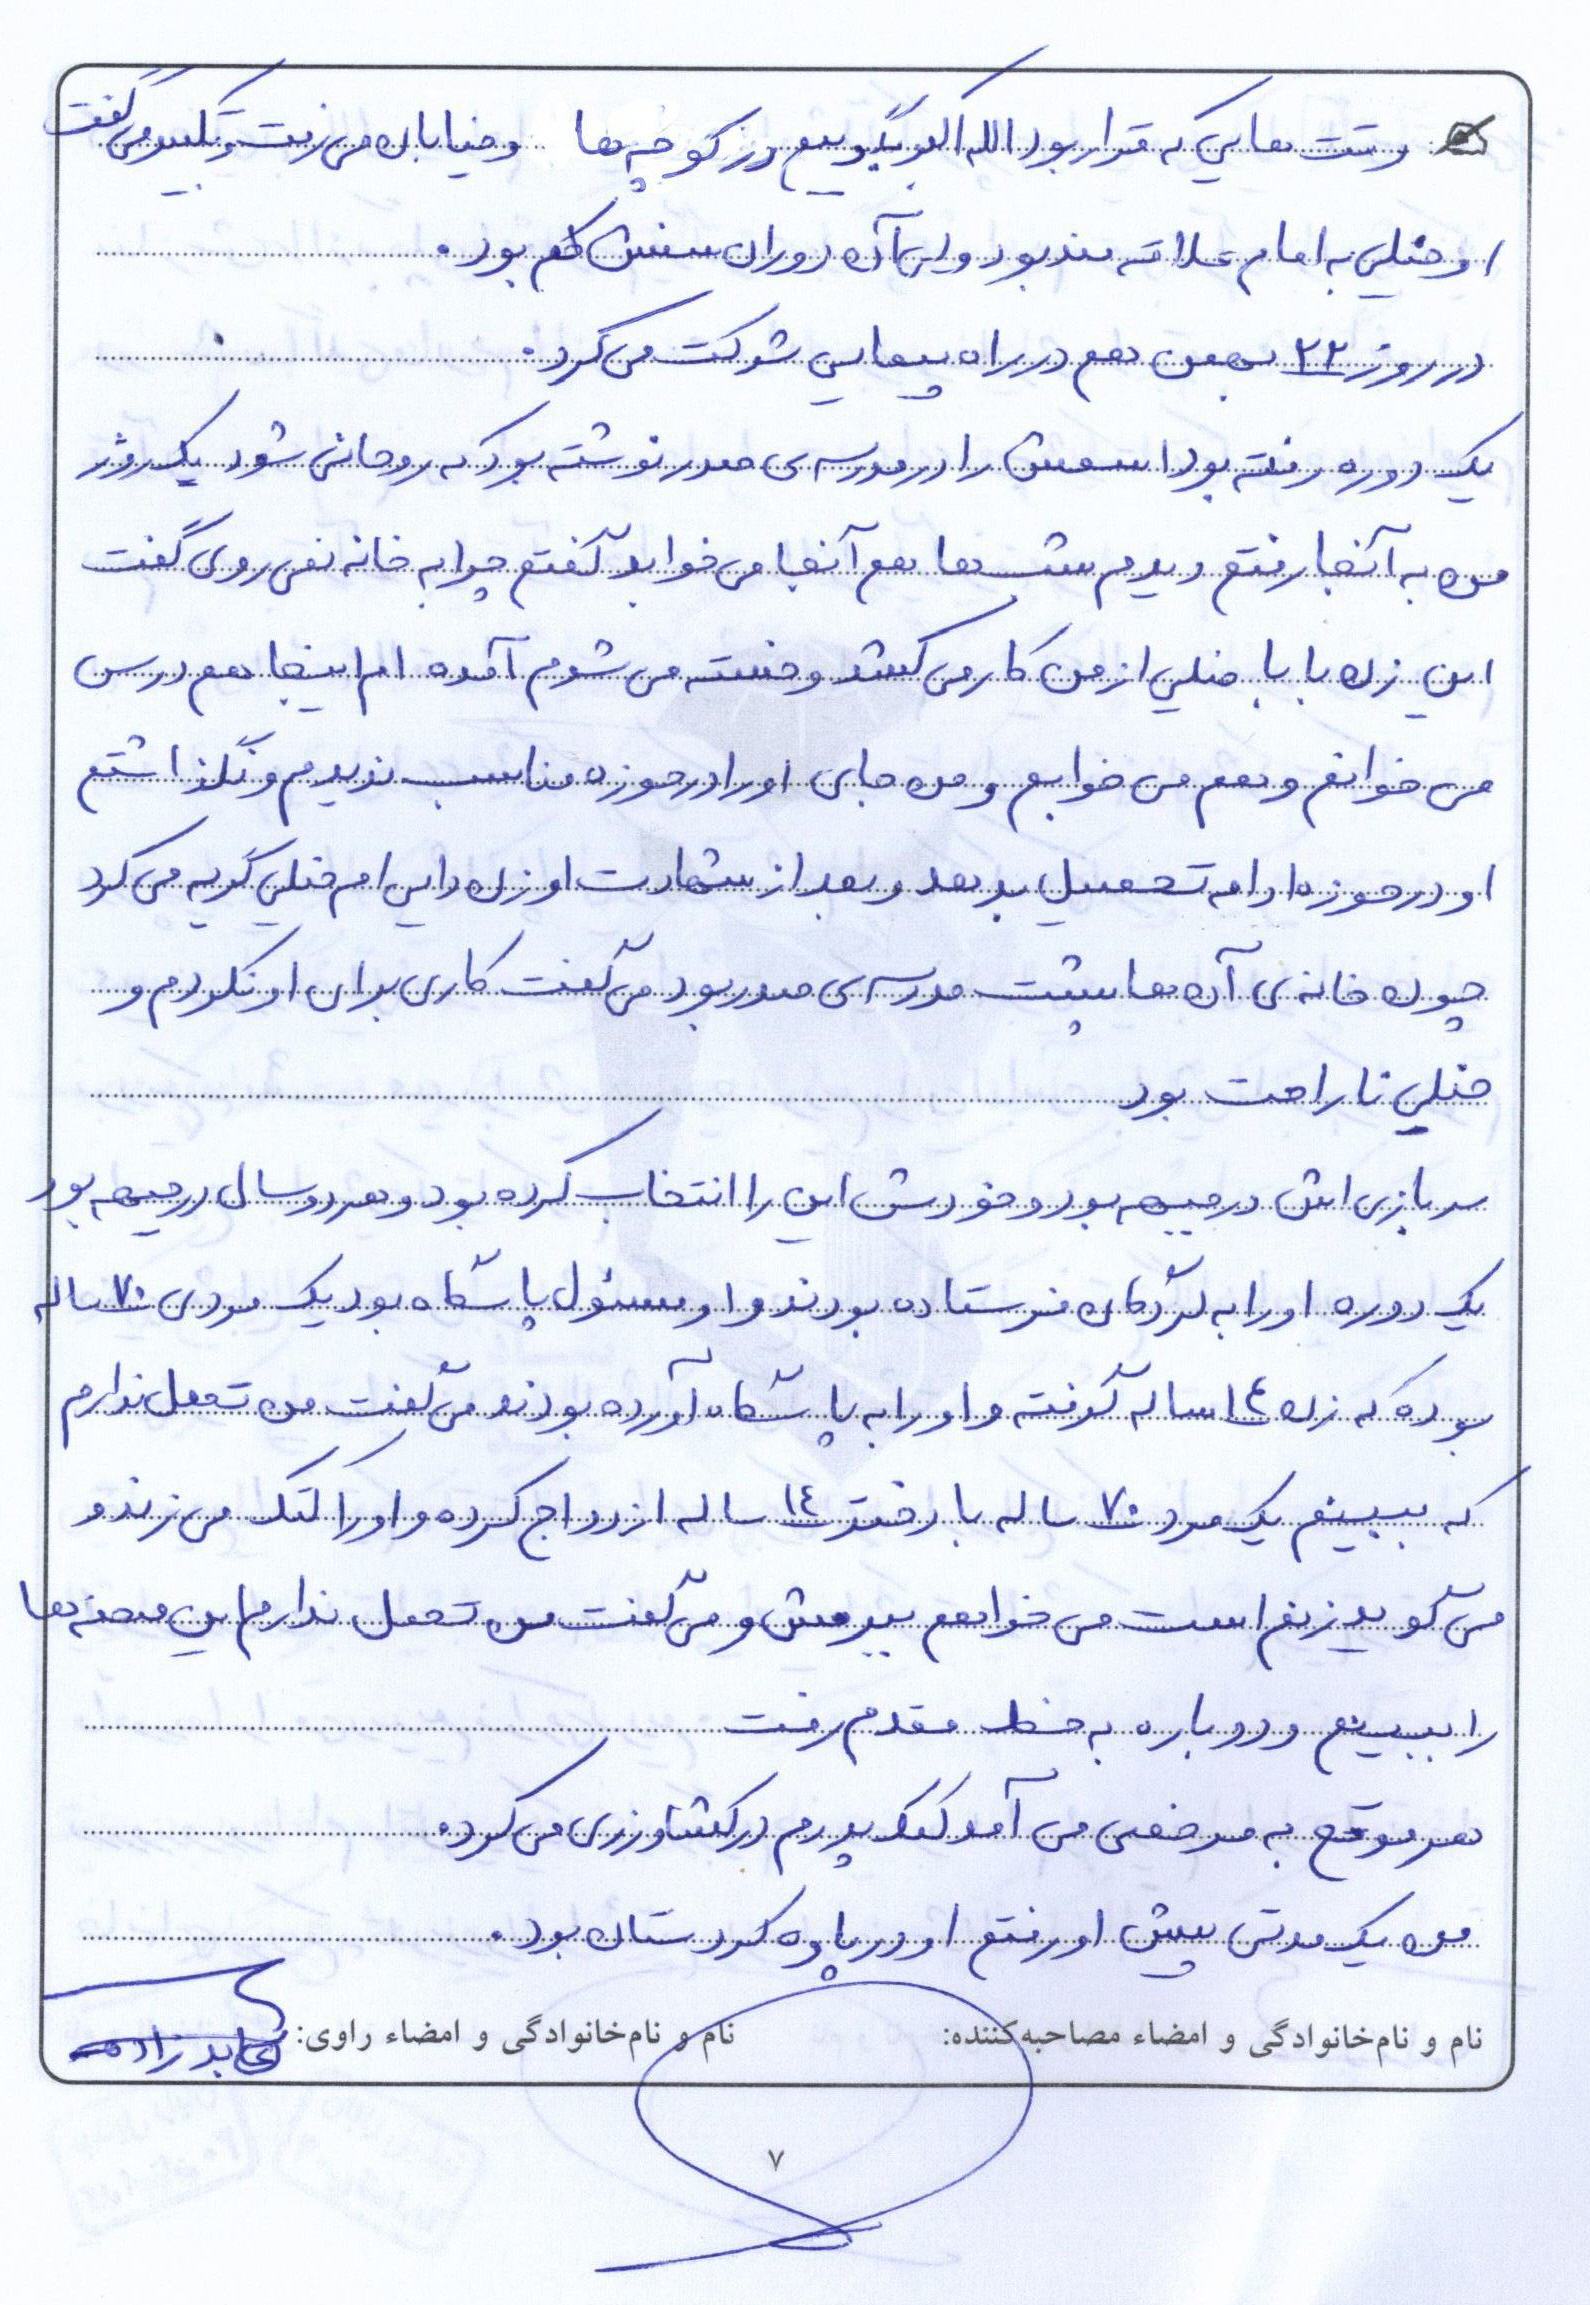 وقت هایی که قرار بود الله اکبر بگوییم در کوچه ها و خیابان می رفت و تکبیر می گفت
او خیلی به امام علاقه مند بود ولی آن دوران سنش کم بود.
در روز ۲۲ بهمن هم در راه پیمایی شرکت می کرد.
یک دوره رفته بود اسمش را در مدرسه ی صدر نوشته بود که روحانی شود یک روز
من به آنجا رفتم دیدم شب ها هم آنجا می خوابد گفتم چرا به خانه نمی روی گفت
این زن بابا خیلی از من کار می کشد و خسته می شوم آمده ام اینجا هم درس
می خوانم و هم می خوابم و من جای او را در حوزه مناسب ندیدم و نگذاشتم
او در حوزه ادامه تحصیل بدهد و بعد از شهادت او زن دایی ام خیلی گریه می کرد
چون خانه ی آن ها پشت مدرسه ی صدر بود می گفت کاری برای او نکردم و
خیلی ناراحت بود
سربازی اش در جبهه بود و خودش این را انتخاب کرده بود و هر دو سال در جبهه بود
یک دوره او را به لردگان فرستاده بودند و او مسئول پاسگاه بود یک مردی ۷۰ ساله
بوده که زن ۱٤ ساله گرفته و او را به پاسگاه آورده بودند می گفت من تحمل ندارم
که ببینم یک مرد ۷۰ ساله با دختر ۱٤ ساله ازدواج کرده و او را کتک می زند و
می گوید زنم است می خواهم ببرمش و می گفت من تحمل ندارم این صحنه ها
را ببینم و دوباره به خط مقدم رفت
هر موقع به مرخصی می آمد کمک پدرم در کشاورزی می کرد.
من یک مدتی پیش او رفتم او در پاوه کردستان بود.
نام و نام‌خانوادگی و امضاء مصاحبه‌کننده: نام و نام‌خانوادگی و امضاء راوی: عابدزاده
۷